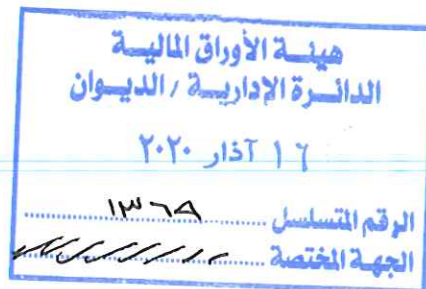 هيئة الأوراق المالية
الدائرة الإدارية / الديوان
١٦ آذار ٢٠٢٠
الرقم المتسلسل ١٣٦٩
الجهة المختصة